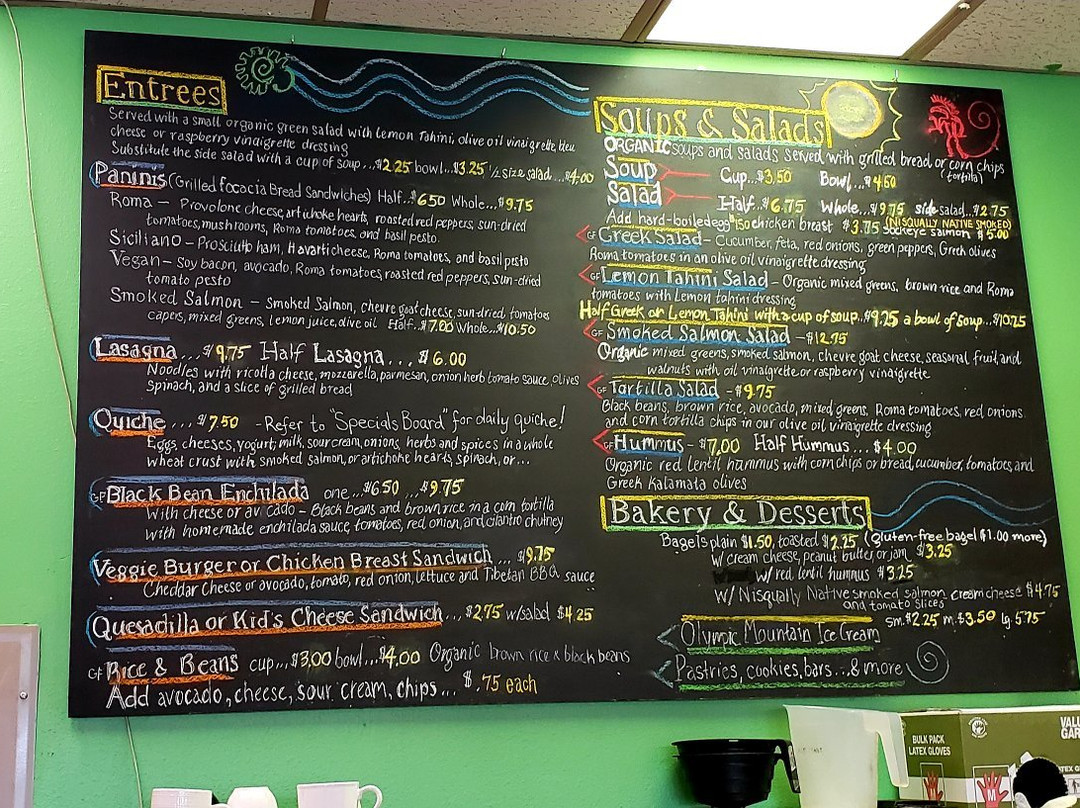 Entrees
Served with a small organic green salad with lemon Tahini, olive oil vinaigrette, bleu
cheese or raspberry vinaigrette dressing
Substitute the side salad with a cup of soup...$2.25 bowl...$3.25 ½ size salad...$4.00
Paninis (Grilled focacia Bread Sandwiches) Half..$6.50 Whole...$9.75
Roma – Provolone cheese, artichoke hearts, roasted red peppers, sun-dried
tomatoes, mushrooms, Roma tomatoes, and basil pesto.
Siciliano – Prosciutto ham, Havarti cheese, Roma tomatoes, and basil pesto
Vegan – Soy bacon, avocado, Roma tomatoes roasted red peppers, sun-dried
tomato pesto
Smoked Salmon – Smoked Salmon, chevre goat cheese, sun-dried tomatoes
capers, mixed greens, lemon juice, olive oil Half..$7.00 Whole...$10.50
Lasagna...$9.75 Half Lasagna....$6.00
Noodles with ricotta cheese, mozzarella, parmesan, onion herb tomato sauce, olives
Spinach, and a slice of grilled bread
Quiche ...$7.50 - Refer to "Specials Board" for daily quiche!
Eggs, cheeses, yogurt, milk, sour cream, onions, herbs and spices in a whole
wheat crust with smoked salmon, or artichoke hearts, spinach, or...
GF Black Bean Enchilada one...$6.50 ...$9.75
With cheese or avocado – Black beans and brown rice in a corn tortilla
with homemade enchilada sauce, tomatoes, red onion, and cilantro chutney
Veggie Burger or Chicken Breast Sandwich ...$9.75
Cheddar Cheese or avocado, tomato, red onion, lettuce and Tibetan BBQ sauce
Quesadilla or Kid's Cheese Sandwich...$2.75 w/salad $4.25
GF Rice & Beans cup...$3.00 bowl...$4.00 Organic brown rice & black beans
Add avocado, cheese, sour cream, chips... $.75 each
Soups & Salads
ORGANIC soups and salads served with grilled bread or corn chips
(tortilla)
Soup Cup...$3.50 Bowl...$4.50
Salad Half...$6.75 Whole...$9.75 side salad...$2.75
Add hard-boiled egg $1.50 chicken breast $3.75 (NISQUALLY NATIVE SMOKED) Sockeye salmon $5.00
GF Greek Salad – Cucumber, feta, red onions, green peppers, Greek olives
Roma tomatoes in an olive oil vinaigrette dressing
GF Lemon Tahini Salad - Organic mixed greens, brown rice and Roma
tomatoes with Lemon tahini dressing
Half Greek or Lemon Tahini with a cup of soup..$9.25 a bowl of soup...$10.25
GF Smoked Salmon Salad –$12.75
Organic mixed greens, smoked salmon, chevre goat cheese, seasonal fruit, and
walnuts with oil vinaigrette or raspberry vinaigrette
GF Tortilla Salad –$9.75
Black beans, brown rice, avocado, mixed greens, Roma tomatoes, red onions
and corn tortilla chips in our olive oil vinaigrette dressing
GF Hummus –$7.00 Half Hummus...$4.00
Organic red lentil hummus with corn chips or bread, cucumber, tomatoes, and
Greek Kalamata olives
Bakery & Desserts
Bagels plain $1.50, toasted $2.25 (gluten-free bagel $1.00 more)
w/ cream cheese, peanut butter, or jam $3.25
w/ red lentil hummus $3.25
w/ Nisqually Native smoked salmon cream cheese $4.75
and tomato slices
Olympic Mountain Ice Cream sm.$2.25 m.$3.50 lg.5.75
Pastries, cookies, bars...& more
BULK PACK
LATEX GLOVES
M